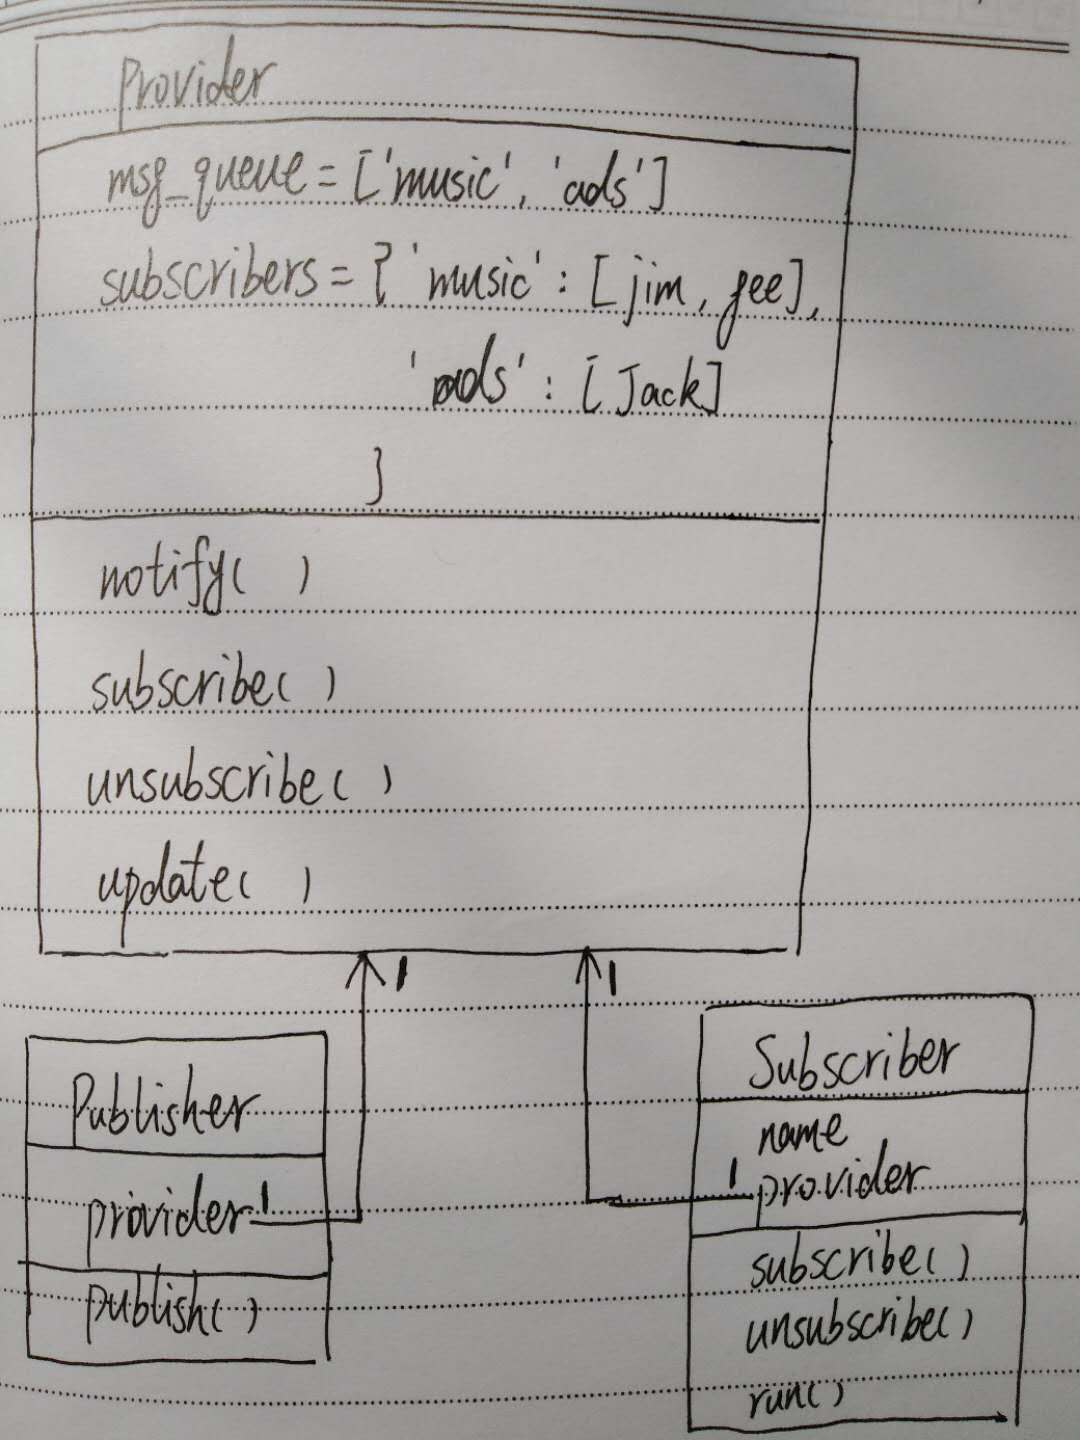 Provider
msg_queue = ['music', 'ads']
subscribers = { 'music' : [jim, gee],
'ads' : [Jack]
}
notify( )
subscribe( )
unsubscribe( )
update( )
1
1
Publisher
provider 1
publish( )
Subscriber
name
1 provider
subscribe( )
unsubscribe( )
run( )